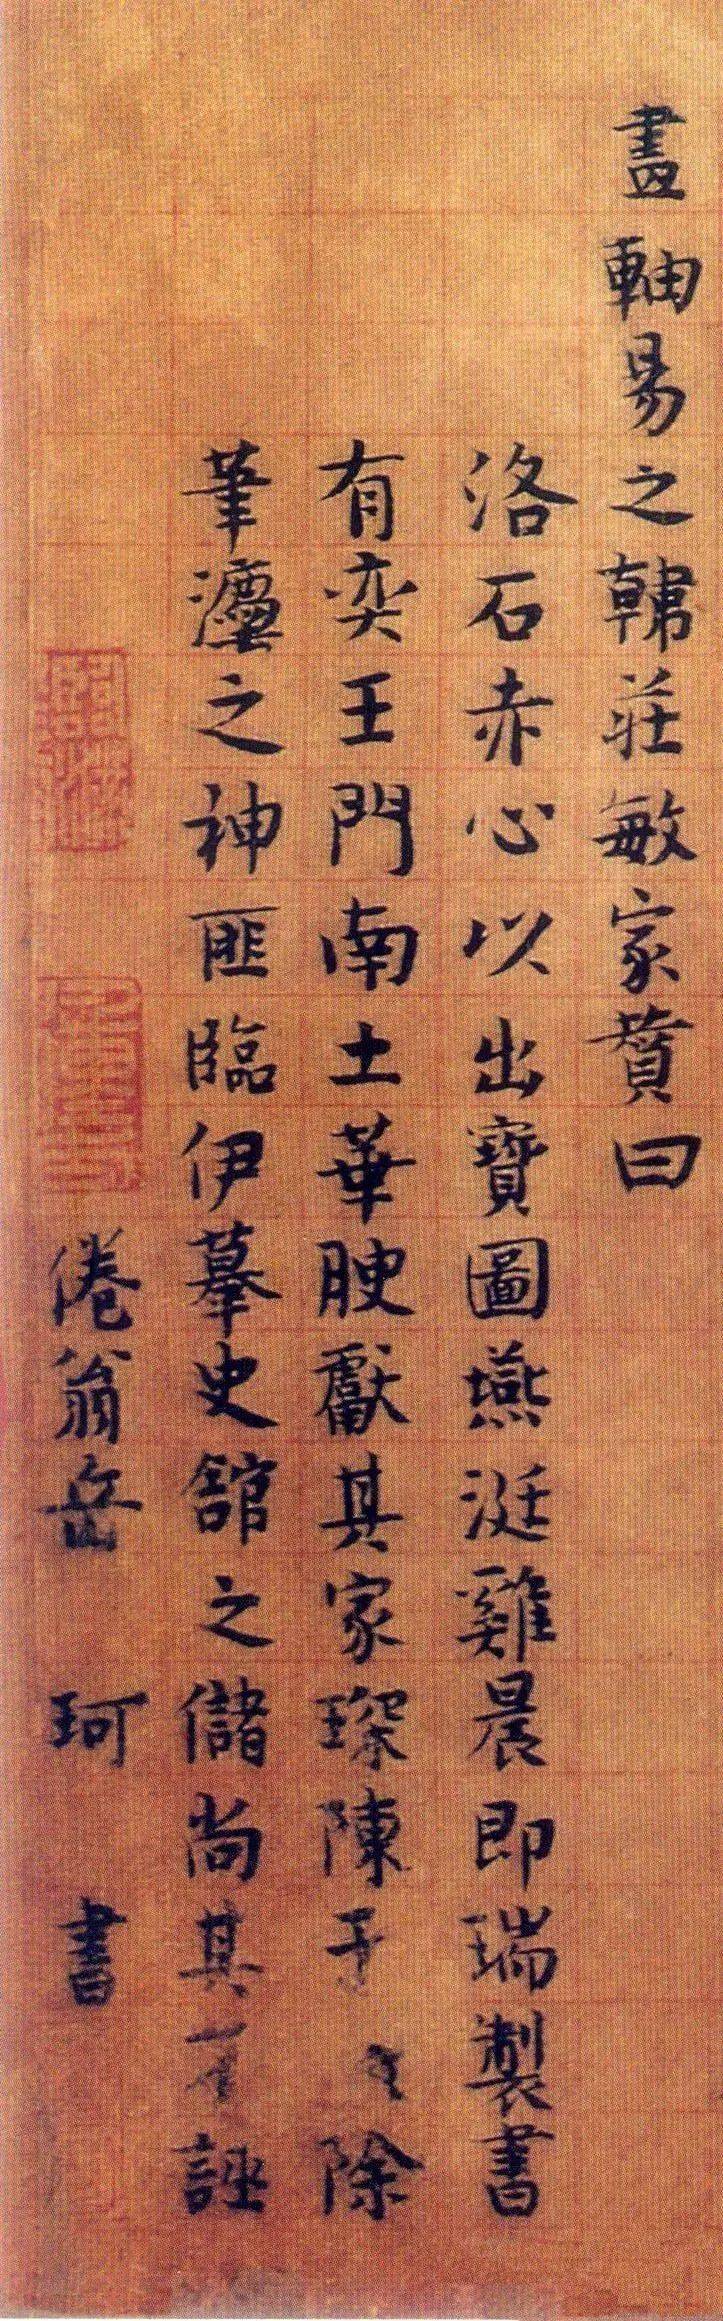 畫軸易之韓莊敏家贊曰
洛石赤心以出寶圖燕涎雞晨即瑞製書
有奕王門南土華腴獻其家琛陳于 除
筆灋之神匪臨伊摹史館之儲尚其 誣
倦翁岳珂書